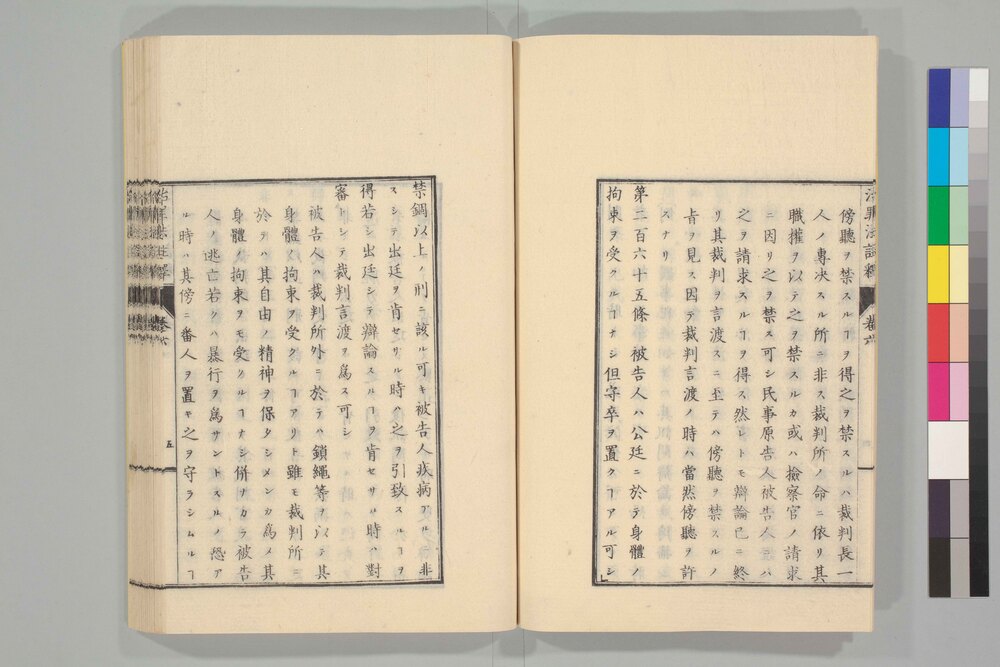 傍聽ヲ禁スルヿヲ得之ヲ禁スルハ裁判長一
人ノ專决スル所ニ非ス裁判所ノ命ニ依リ其
職權ヲ以テ之ヲ禁スルカ或ハ檢察官ノ請求
ニ因リ之ヲ禁ス可シ民事原告人被告人ニハ
之ヲ請求スルヿヲ得ス然レトモ辯論已ニ終
リ其裁判ヲ言渡スニ至テハ傍聽ヲ禁スルノ
㫖ヲ見ス因テ裁判言渡ノ時ハ當然傍聽ヲ許
スナリ
第二百六十五條 被告人ハ公廷ニ於テ身體ノ
拘束ヲ受クルヿナシ但守卒ヲ置クヿアル可シ
禁錮以上ノ刑ニ該ル可キ被告人疾病アルニ非
スシテ出廷ヲ肯セサル時ハ之ヲ引致スルヿヲ
得若シ出廷シテ辯論スルヿヲ肯セサル時ハ對
審ナリシテ裁判言渡ヲ爲ス可シ
被告人ハ裁判所外ニ於テハ鎖繩等ヲ以テ其
身體ノ拘束ヲ受クルヿアリト雖モ裁判所ニ
於テハ其自由ノ精神ヲ保タシメンカ爲メ其
身體ノ拘束ヲモ受クルヿナシ併ナカラ被告
人ノ逃亡若クハ暴行ヲ爲サントスルノ恐ア
ル時ハ其傍ニ番人ヲ置キ之ヲ守ラシムルヿ
五